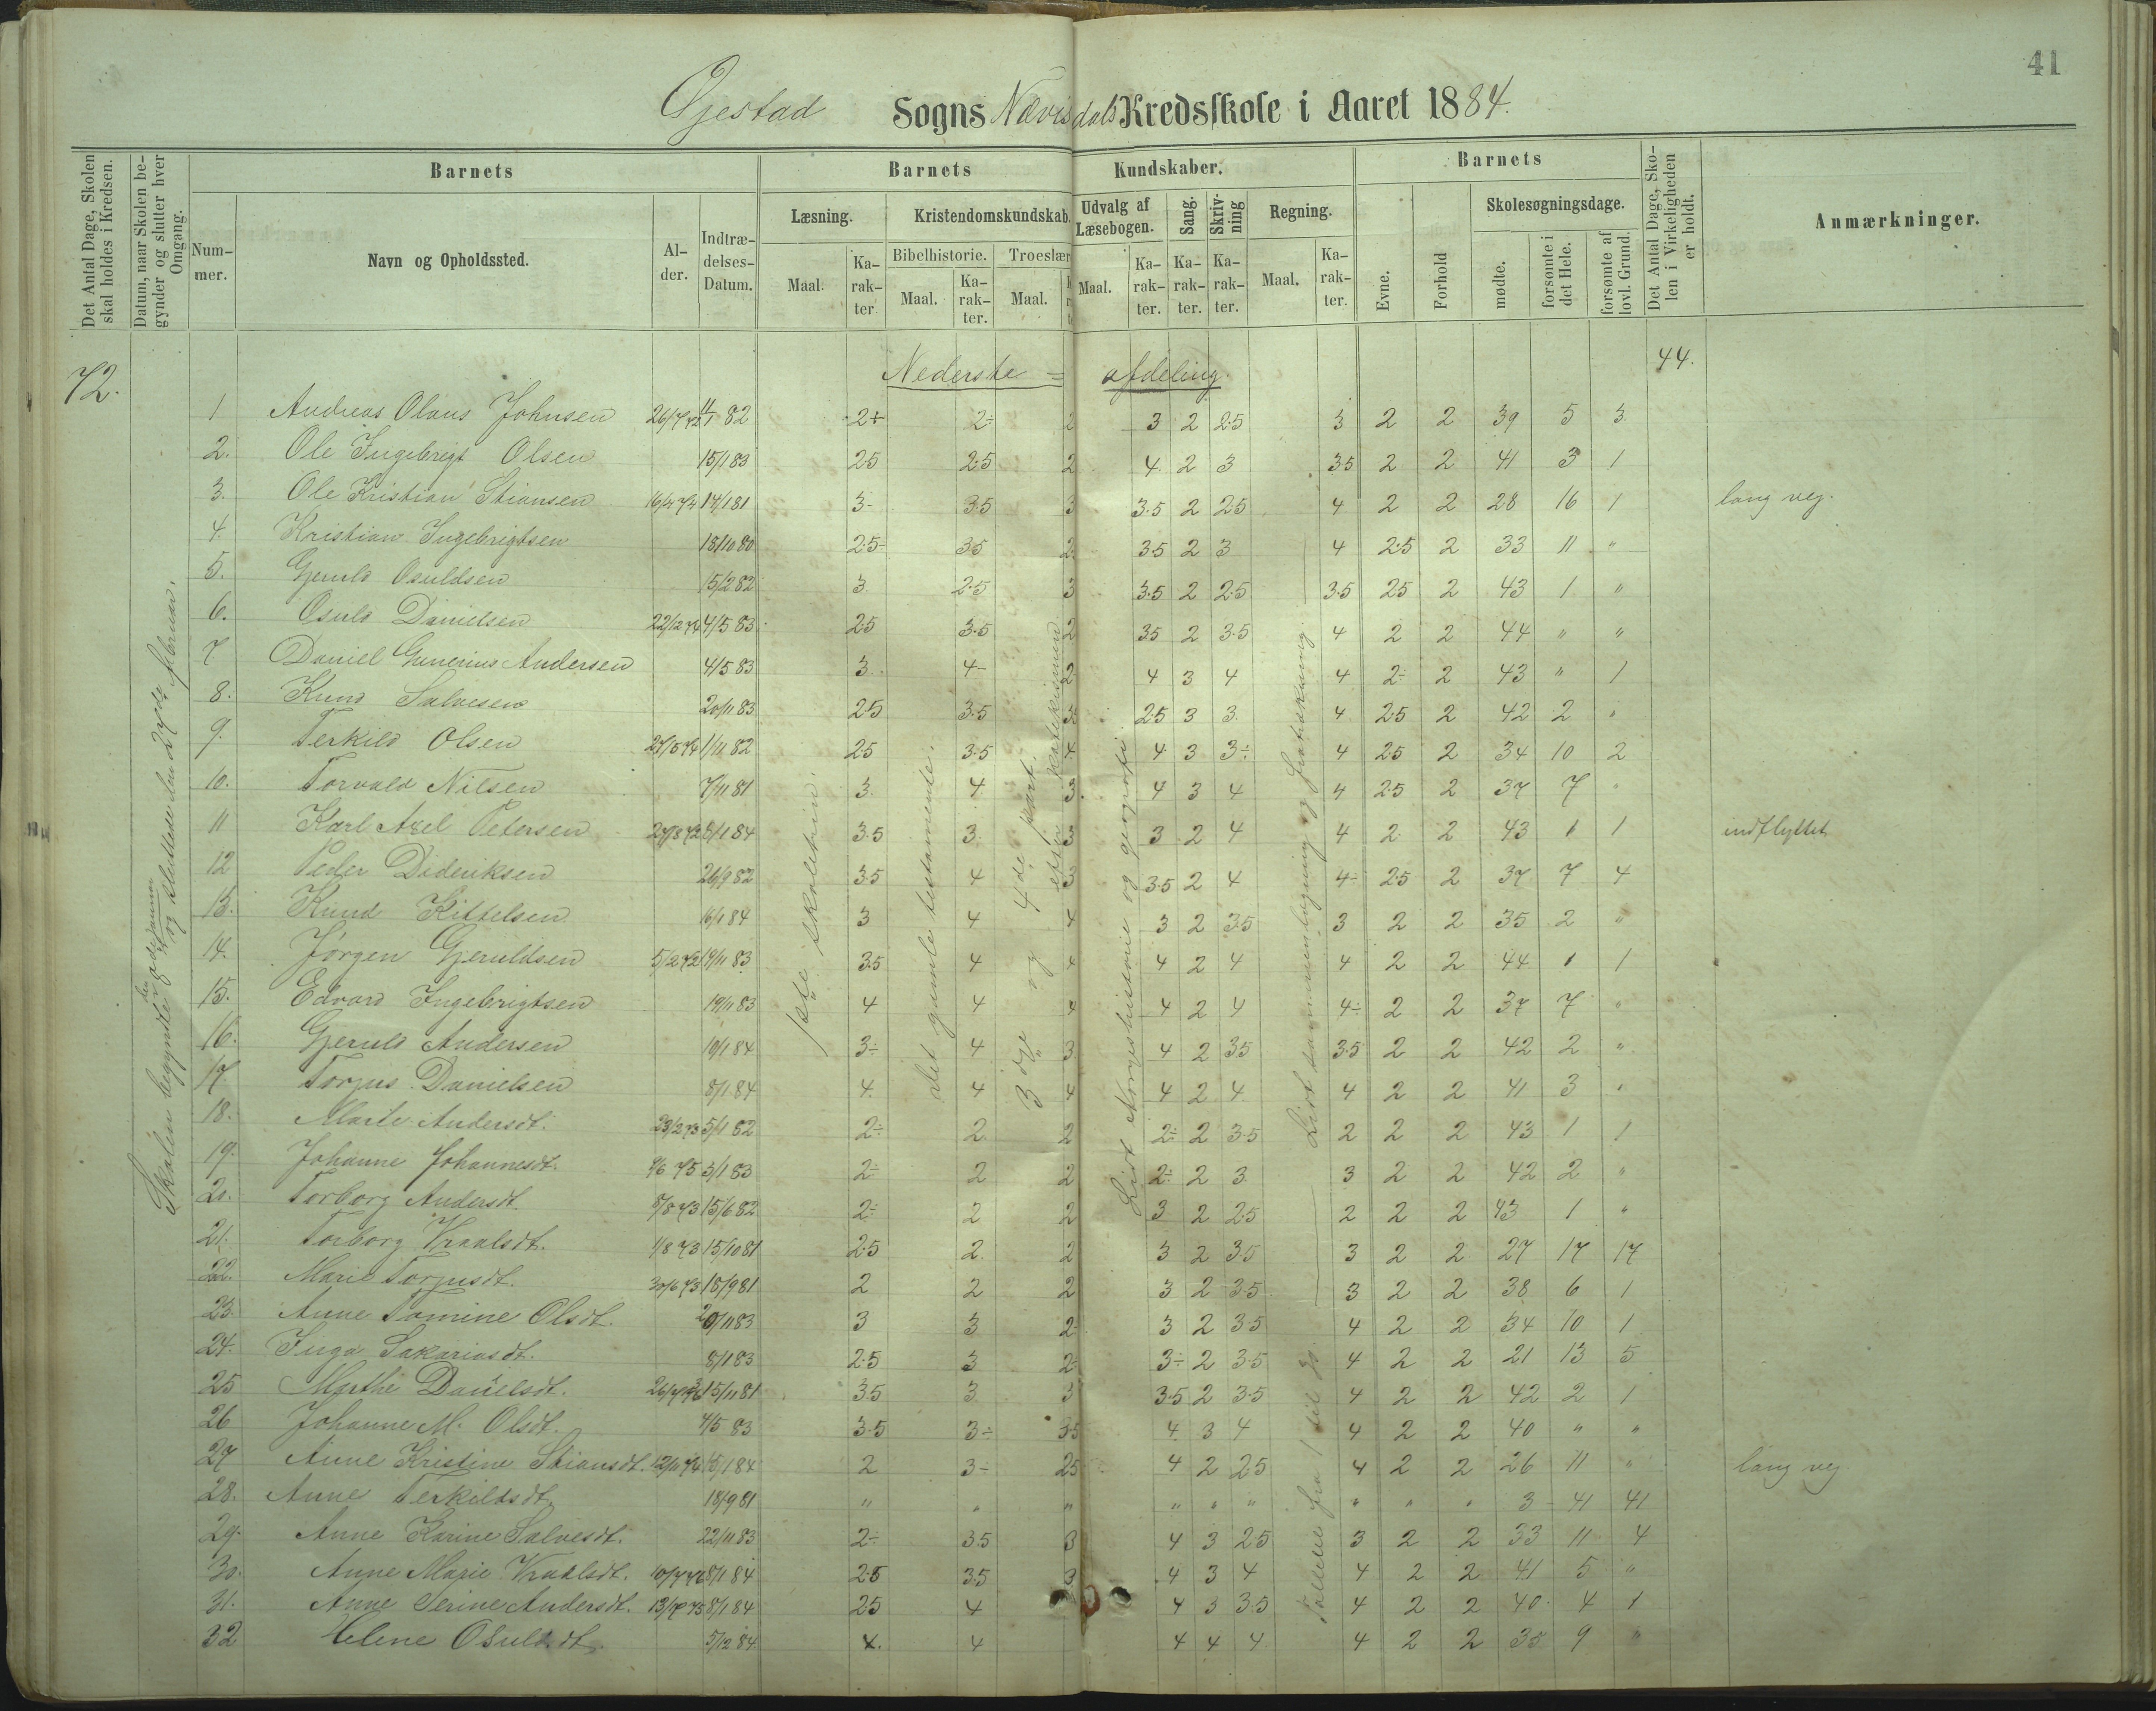 41
Øjestad Sogns Nævisdals Kredsskole i Aaret 1884.
Det Antal Dage, Skolen skal holdes i Kredsen.
Datum, naar Skolen begynder og slutter hver Omgang.
Barnets
Nummer.
Navn og Opholdssted.
Alder.
Indtrædelses-Datum.
Barnets Kundskaber.
Læsning.
Maal.
Karakter
Kristendomskundskab.
Bibelhistorie.
Maal.
Karakter.
Troeslær
Maal.
Udvalg af Læsebogen.
Maal.
Karakter.
Sang.
Karakter.
Skrivning
Karakter.
Regning.
Maal.
Karakter.
Barnets
Evne.
Forhold
Skolesøgningsdage.
mødte.
forsømte i det Hele.
forsømte af lovl. Grund.
Det Antal Dage, Skolen i Virkeligheden er holdt.
Anmærkninger.
72.
Nederste = afdeling.
44.
1 Andreas Olaus Johnsen 26/7 72 11/1 82 2+ 2÷ 2 3 2 2.5 3 2 2 39 5 3
2. Ole Ingebrigt Olsen 15/1 83 2.5 2.5 2 4 2 3 3.5 2 2 41 3 1
3. Ole Kristian Stiansen 16/4 74 14/1 81 3- 3.5 3 3.5 2 2.5 4 2 2 28 16 1 lang vej.
4. Kristian Ingebrigtsen 18/10 80 2.5÷ 3.5 2 3.5 2 3 4 2.5 2 33 11 "
5. Gjeruld Osuldsen 15/2 82 3 2.5 3 3.5 2 2.5 3.5 2.5 2 43 1 "
6. Osuld Danielsen 22/12 74 4/5 83 2.5 3.5 2 3.5 2 3.5 4 2 2 44 " "
7 Daniel Gunerius Andersen 4/5 83 3 4- 2 4 3 4 4 2÷ 2 43 " 1
8. Knud Salvesen 20/11 83 2.5 3.5 3 2.5 3 3 4 2.5 2 42 2 "
9. Terkild Olsen 1/11 82 2.5 3.5 4 4 3 3÷ 4 2.5 2 34 10 2
10. Torvald Nilsen 7/11 81 3 4 3. 4 3 4 4 2.5 2 37 7 "
11 Karl Axel Petersen 8/1 84 3.5 3 3 3 2 4 4 2 2 43 1 1 indflyttet
12 Peder Dideriksen 26/9 82 3.5 4 3 3.5 2 4 4- 2.5 2 37 7 4
13. Knud Kittelsen 16/1 84 3 4 4 3 2 3.5 3 2 2 35 2 "
14. Jørgen Gjeruldsen 5/2 72 19/11 83 3.5 4 4 4 2 4 4 2 2 44 1 1
15. Edvard Ingebrigtsen 19/11 83 4 4 4 4 2 4 4÷ 2 2 37 7 "
16. Gjeruld Andersen 10/1 84 3÷ 4 3 4 2 3.5 3.5 2 2 42 2 "
17 Torjus Danielsen 8/1 84 4 4 4 4 2 4 4 2 2 41 3 "
18. Marte Andersdt. 23/2 73 5/1 82 2÷ 2 2 2÷ 2 3.5 2 2 2 43 1 1
19. Johanne Johannesdt. 9/6 75 3/1 83 2÷ 2 2 2÷ 2 3 3 2 2 42 2 "
20. Torborg Andersdt. 8/8 73 15/6 82 2÷ 2 2 3 2 2.5 2 2 2 43 1 "
21. Torborg Kraalsdt. 1/8 73 15/10 81 2.5 2 2 3 2 3.5 3 2 2 27 17 17
22. Marie Torjusdt. 30/6 73 18/9 81 2 2 2 3 2 3.5 3 2 2 38 6 1
23. Anne Tomine Olsdt. 20/11 83 3 3 2 3 2 3.5 4 2 2 34 10 1
24. Inga Sakariasdt. 8/1 83 2.5 3 2 3÷ 2 3.5 4 2 2 21 13 5
25 Marthe Danielsdt. 15/11 81 3.5 3 3 3.5 2 3.5 4 2 2 42 2 1
26 Johanne M. Olsdt. 4/5 83 3.5 3÷ 3.5 4 3 4 4 2 2 40 " "
27 Anne Kristine Stiansdt. 12/11 74 15/1 84 2 3- 2.5 4 2 2.5 4 2 2 26 11 " lang vej
28. Anne Terkildsdt. 18/9 81 " " " " " " " " " 3 41 41
29. Anne Karine Salvesdt. 22/11 83 2÷ 3.5 3 4 3 2.5 3 2 2 33 11 4
30. Anne Marie Kraalsdt. 10/7 76 8/1 84 2.5 3.5 3 4 3 4 4 2 2 41 5 "
31. Anne Serine Andersdt. 8/1 84 2.5 4 4 3 3.5 4 2 2 40 4 1
32 Helene Osuldsdt. 5/12 84 4. 4 4 4 4 4 2 2 35 9 "
Skolen begyndte den og sluttede den 27de februar.
1ste skoletrin.
det gamle testamente.
3dje og 4de part.
efter katekismen
Lidt Norgeshistorie og geografi.
Tallene fra 1 til Lidt sammenlægning og fratrækning